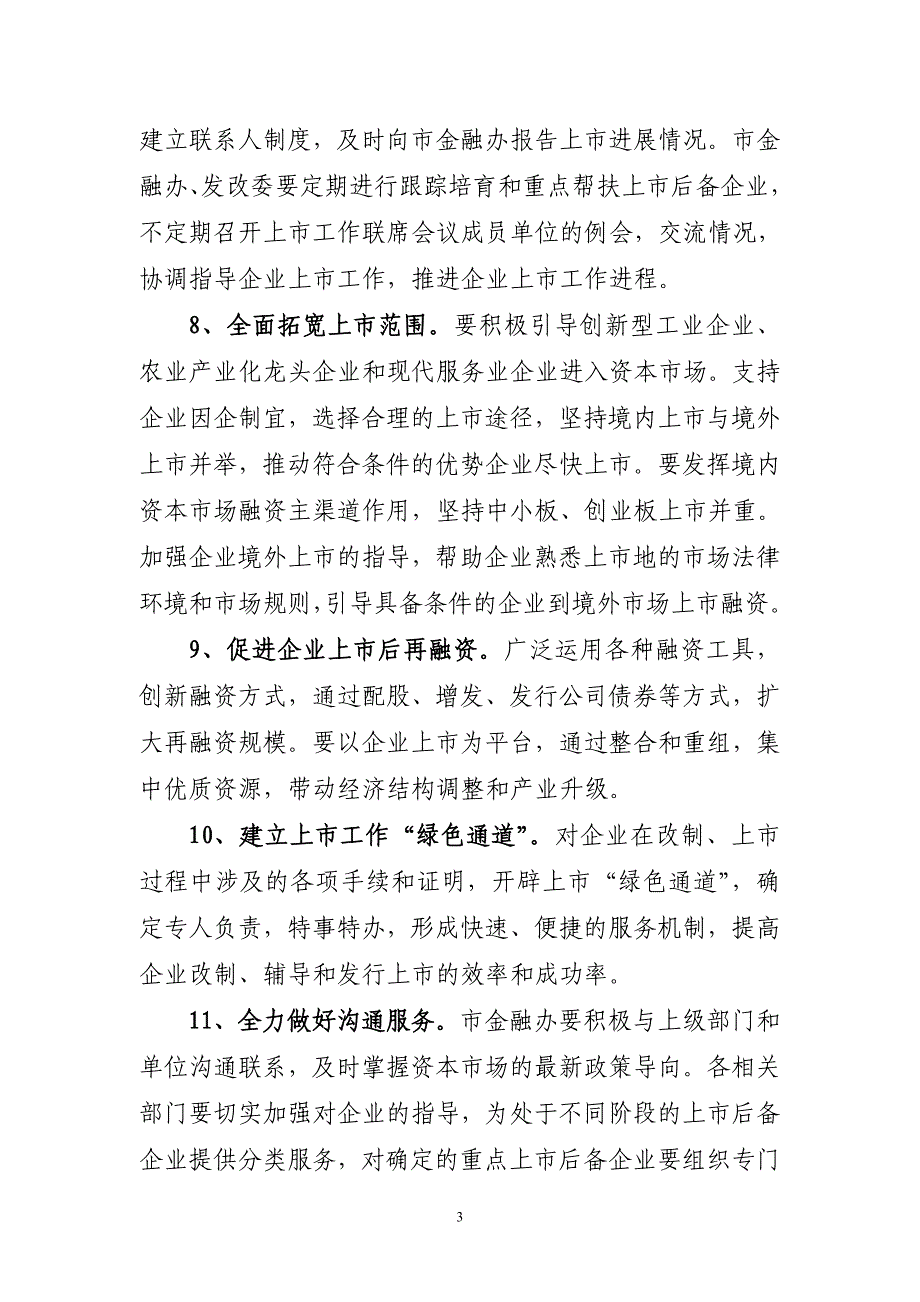 建立联系人制度，及时向市金融办报告上市进展情况。市金
融办、发改委要定期进行跟踪培育和重点帮扶上市后备企业，
不定期召开上市工作联席会议成员单位的例会，交流情况，
协调指导企业上市工作，推进企业上市工作进程。
8、全面拓宽上市范围。要积极引导创新型工业企业、
农业产业化龙头企业和现代服务业企业进入资本市场。支持
企业因企制宜，选择合理的上市途径，坚持境内上市与境外
上市并举，推动符合条件的优势企业尽快上市。要发挥境内
资本市场融资主渠道作用，坚持中小板、创业板上市并重。
加强企业境外上市的指导，帮助企业熟悉上市地的市场法律
环境和市场规则，引导具备条件的企业到境外市场上市融资。
9、促进企业上市后再融资。广泛运用各种融资工具，
创新融资方式，通过配股、增发、发行公司债券等方式，扩
大再融资规模。要以企业上市为平台，通过整合和重组，集
中优质资源，带动经济结构调整和产业升级。
10、建立上市工作“绿色通道”。对企业在改制、上市
过程中涉及的各项手续和证明，开辟上市“绿色通道”，确
定专人负责，特事特办，形成快速、便捷的服务机制，提高
企业改制、辅导和发行上市的效率和成功率。
11、全力做好沟通服务。市金融办要积极与上级部门和
单位沟通联系，及时掌握资本市场的最新政策导向。各相关
部门要切实加强对企业的指导，为处于不同阶段的上市后备
企业提供分类服务，对确定的重点上市后备企业要组织专门
3